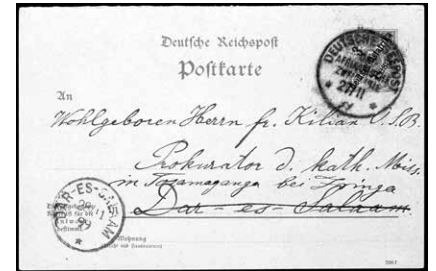 Deutsche Reichspost
Postkarte
An
Wohlgeboren Herrn fr. Kilian O.S.B.
Prokurator d. kath. Miss.
in Tosamaganga bei Iringa
Dar-es-Salaam.
DAR-ES-SALAAM
11
99
Wohnung
DEUTSCHE SEEPOST
27/11